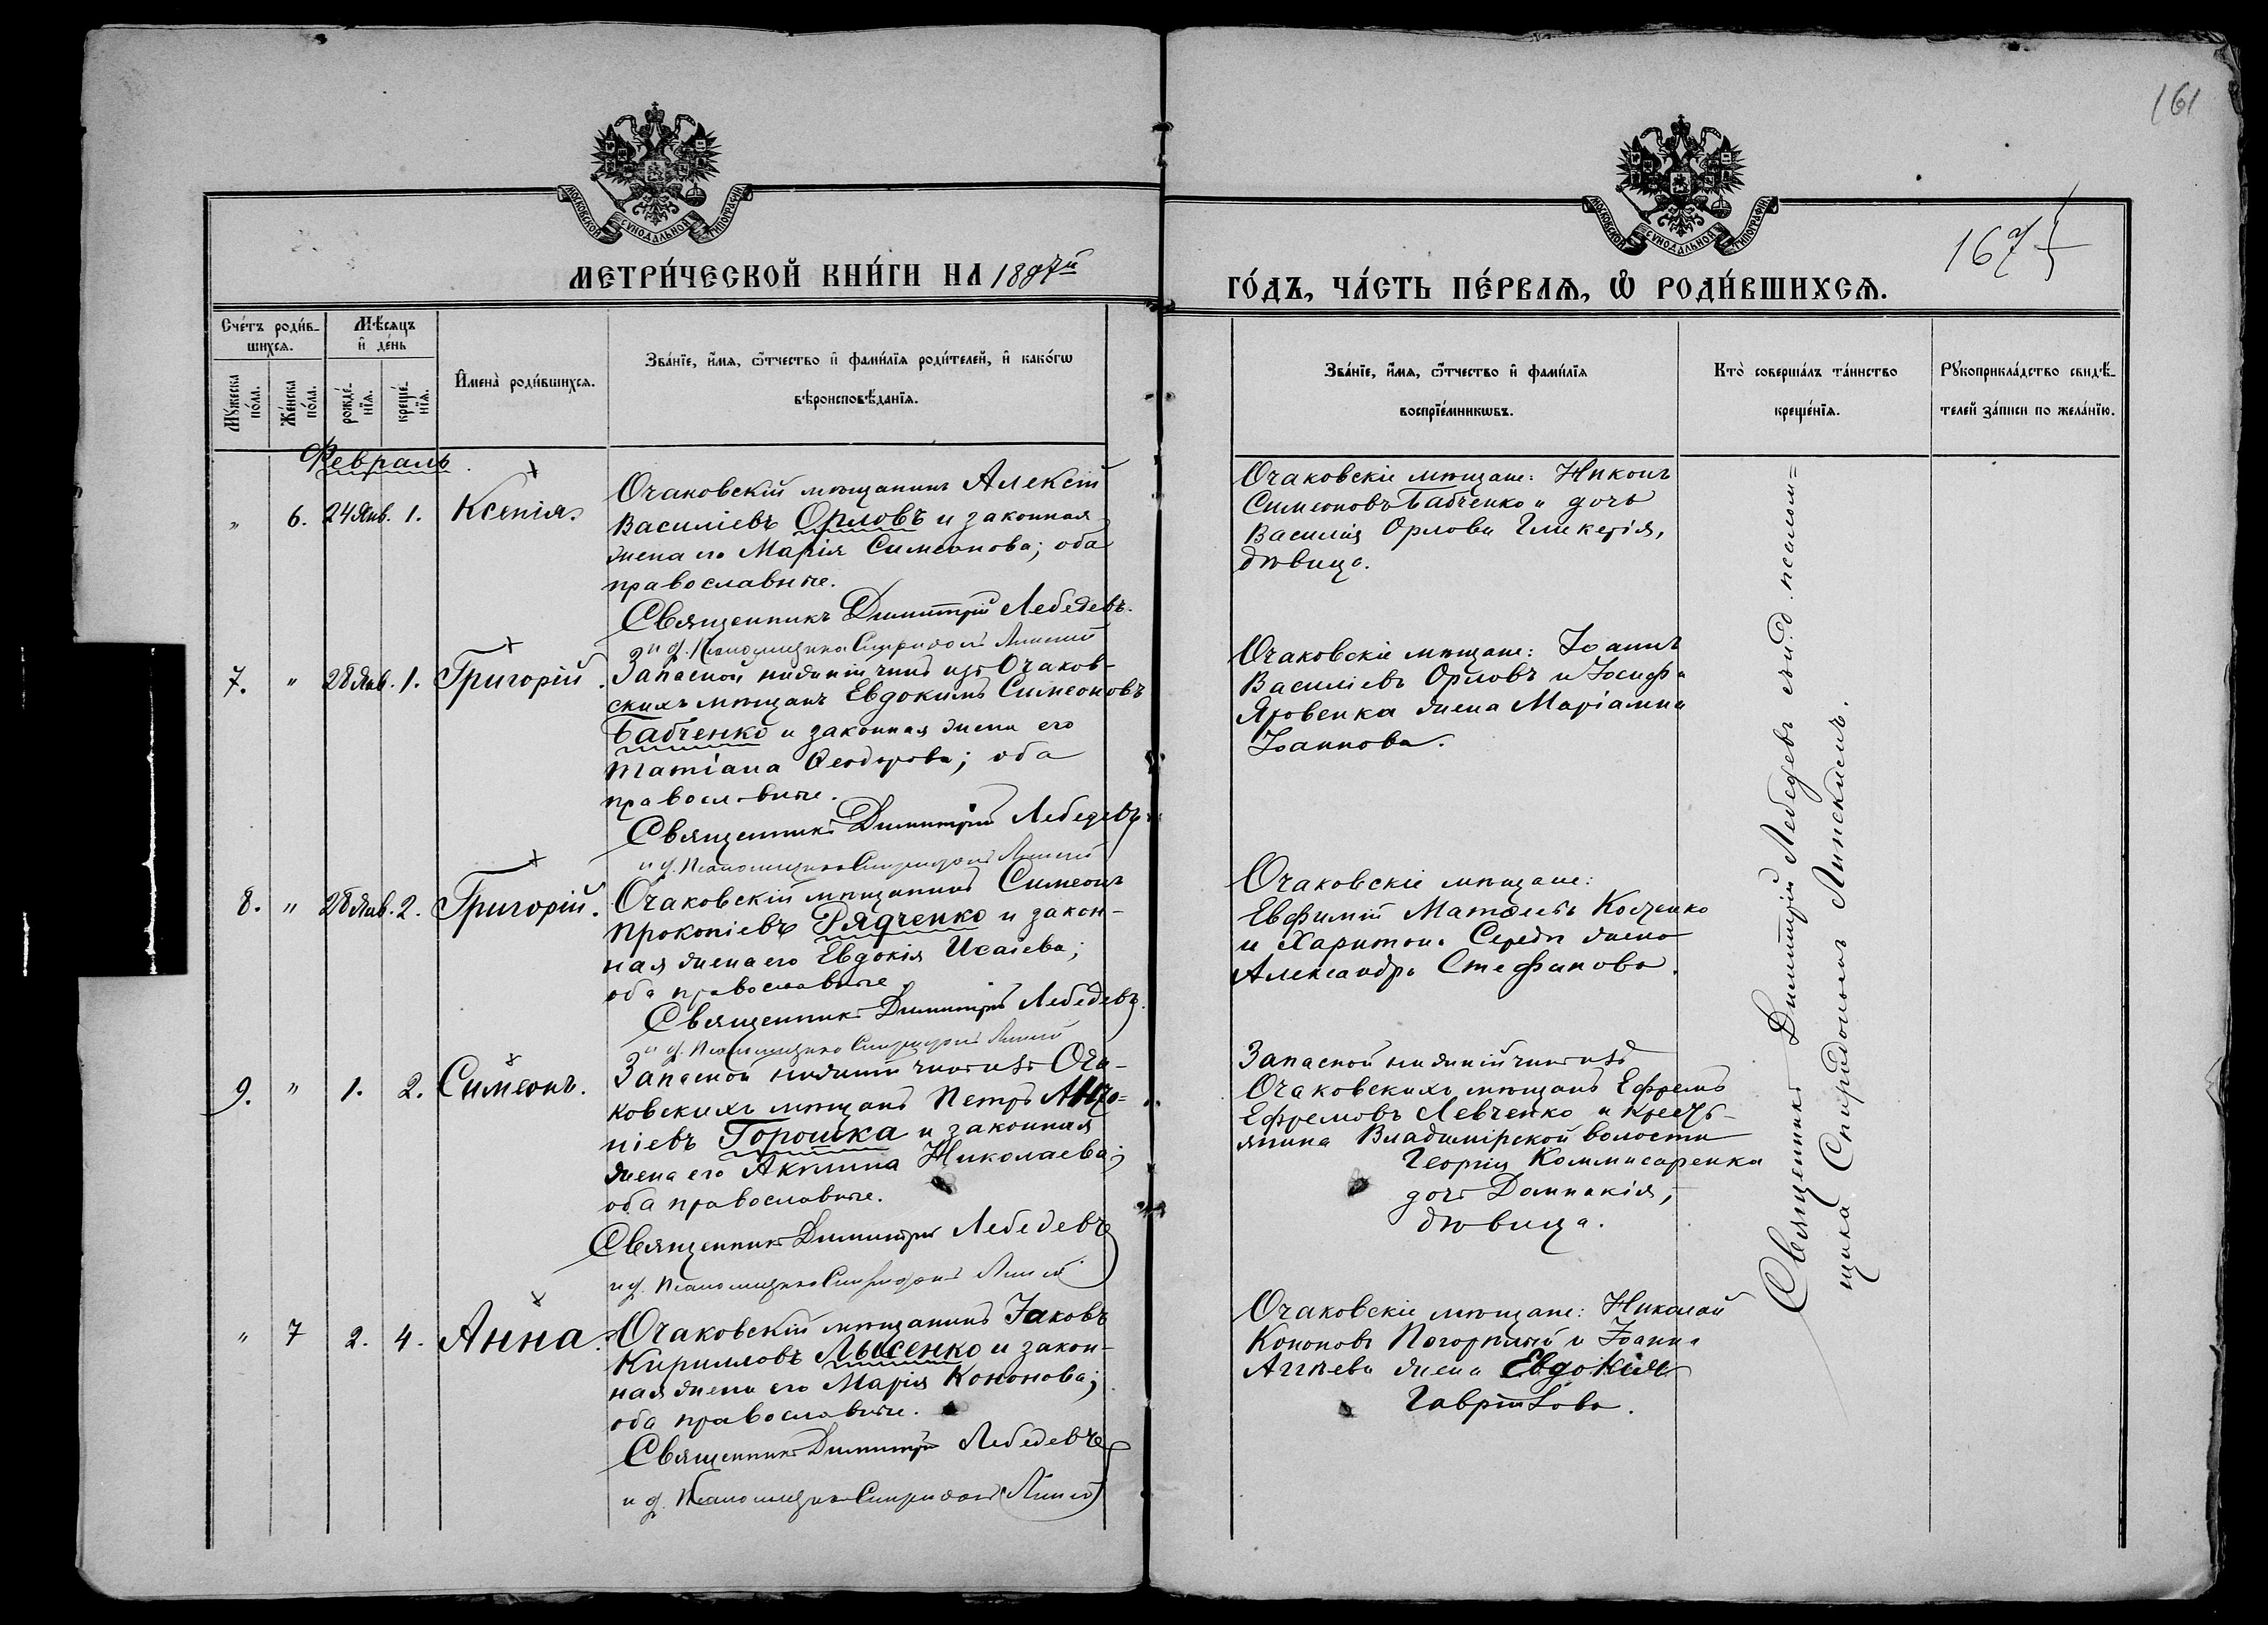 161
МОСКОВСКОЙ СУНОДАЛЬНОЙ ТИПОГРАФІИ
МОСКОВСКОЙ СУНОДАЛЬНОЙ ТИПОГРАФІИ
МЕТРИ́ЧЕСКОЙ КНИ́ГИ НА 1897й
ГО́ДЪ, ЧА́СТЬ ПЕ́РВАѦ, Ѡ҆ РОДИ́ВШИХСѦ.
167
Сче́тъ роди́в-
шихсѧ.
Мѣ́сѧцъ
и҆ де́нь
Мꙋ́жеска
по́ла.
Же́нска
по́ла.
рожде́-
нїѧ.
креще́-
нїѧ.
И҆мена̀ роди́вшихсѧ.
Зва́нїе, и҆́мѧ, ѻ҆́тчество и҆ фами́лїѧ роди́телей, и҆ како́гѡ
вѣроисповѣ́данїѧ.
Зва́нїе, и҆́мѧ, ѻ҆́тчество и҆ фами́лїѧ
воспрїе́мникѡвъ.
Кто̀ соверша́лъ та́инство
креще́нїѧ.
Рꙋкоприкла́дство свидѣ́-
телей за́писи по жела́нїю.
Февраль
" 6. 24 Янв. 1. Ксенія.
Очаковскій мѣщанинъ Алексій
Василіевъ Орловъ и законная
жена его Марія Симеонова; оба
православные.
Священникъ Димитрій Лебедевъ.
и д. Псаломщика Спиридонъ
Очаковскіе мѣщане: Никонъ
Симеоновъ Бабченко и дочь
Василія Орлова Гликерія,
дѣвица.
7. " 28 Янв. 1. Григорій.
Запасной нижній чинъ изъ Очаков-
скихъ мѣщанъ Евдокимъ Симеоновъ
Бабченко и законная жена его
Татіана Ѳеодорова; оба
православные.
Священникъ Димитрій Лебедевъ.
и д. Псаломщика Спиридонъ
Очаковскіе мѣщане: Іоаннъ
Василіевъ Орловъ и Іосифа
Яровенка жена Маріамна
Іоаннова.
8. " 28 Янв. 2. Григорій.
Очаковскій мѣщанинъ Симеонъ
Прокопіевъ Рядченко и закон-
ная жена его Евдокія Исаіева;
оба православные.
Священникъ Димитрій Лебедевъ.
и д. Псаломщика Спиридонъ
Очаковскіе мѣщане:
Евфимій
и Харитона жена
Александра Стефанова.
9. " 1. 2. Симеонъ.
Запасной нижній чинъ изъ Оча-
ковскихъ мѣщанъ Петръ
піевъ Горошка и законная
жена его Акилина Николаева;
оба православные.
Священникъ Димитрій Лебедевъ
и д. Псаломщика Спиридонъ
Запасной нижній чинъ изъ
Очаковскихъ мѣщанъ Ефремъ
Ефремовъ Левченко и кресть-
янина Владимірской волости
Георгія Коммисаренка
дочь Домникія,
дѣвица.
" 7 2. 4. Анна.
Очаковскій мѣщанинъ Іаковъ
Кирилловъ Лысенко и закон-
ная жена его Марія Кононова;
оба православные.
Священникъ Димитрій Лебедевъ
и д. Псаломщика Спиридонъ
Очаковскіе мѣщане: Николай
Кононовъ Погорѣлый и Іоанна
Агѣева жена Евдокія
Гавріилова.
Священникъ Димитрій Лебедевъ съ и. д. псалом=
щика Спиридономъ Липскимъ.